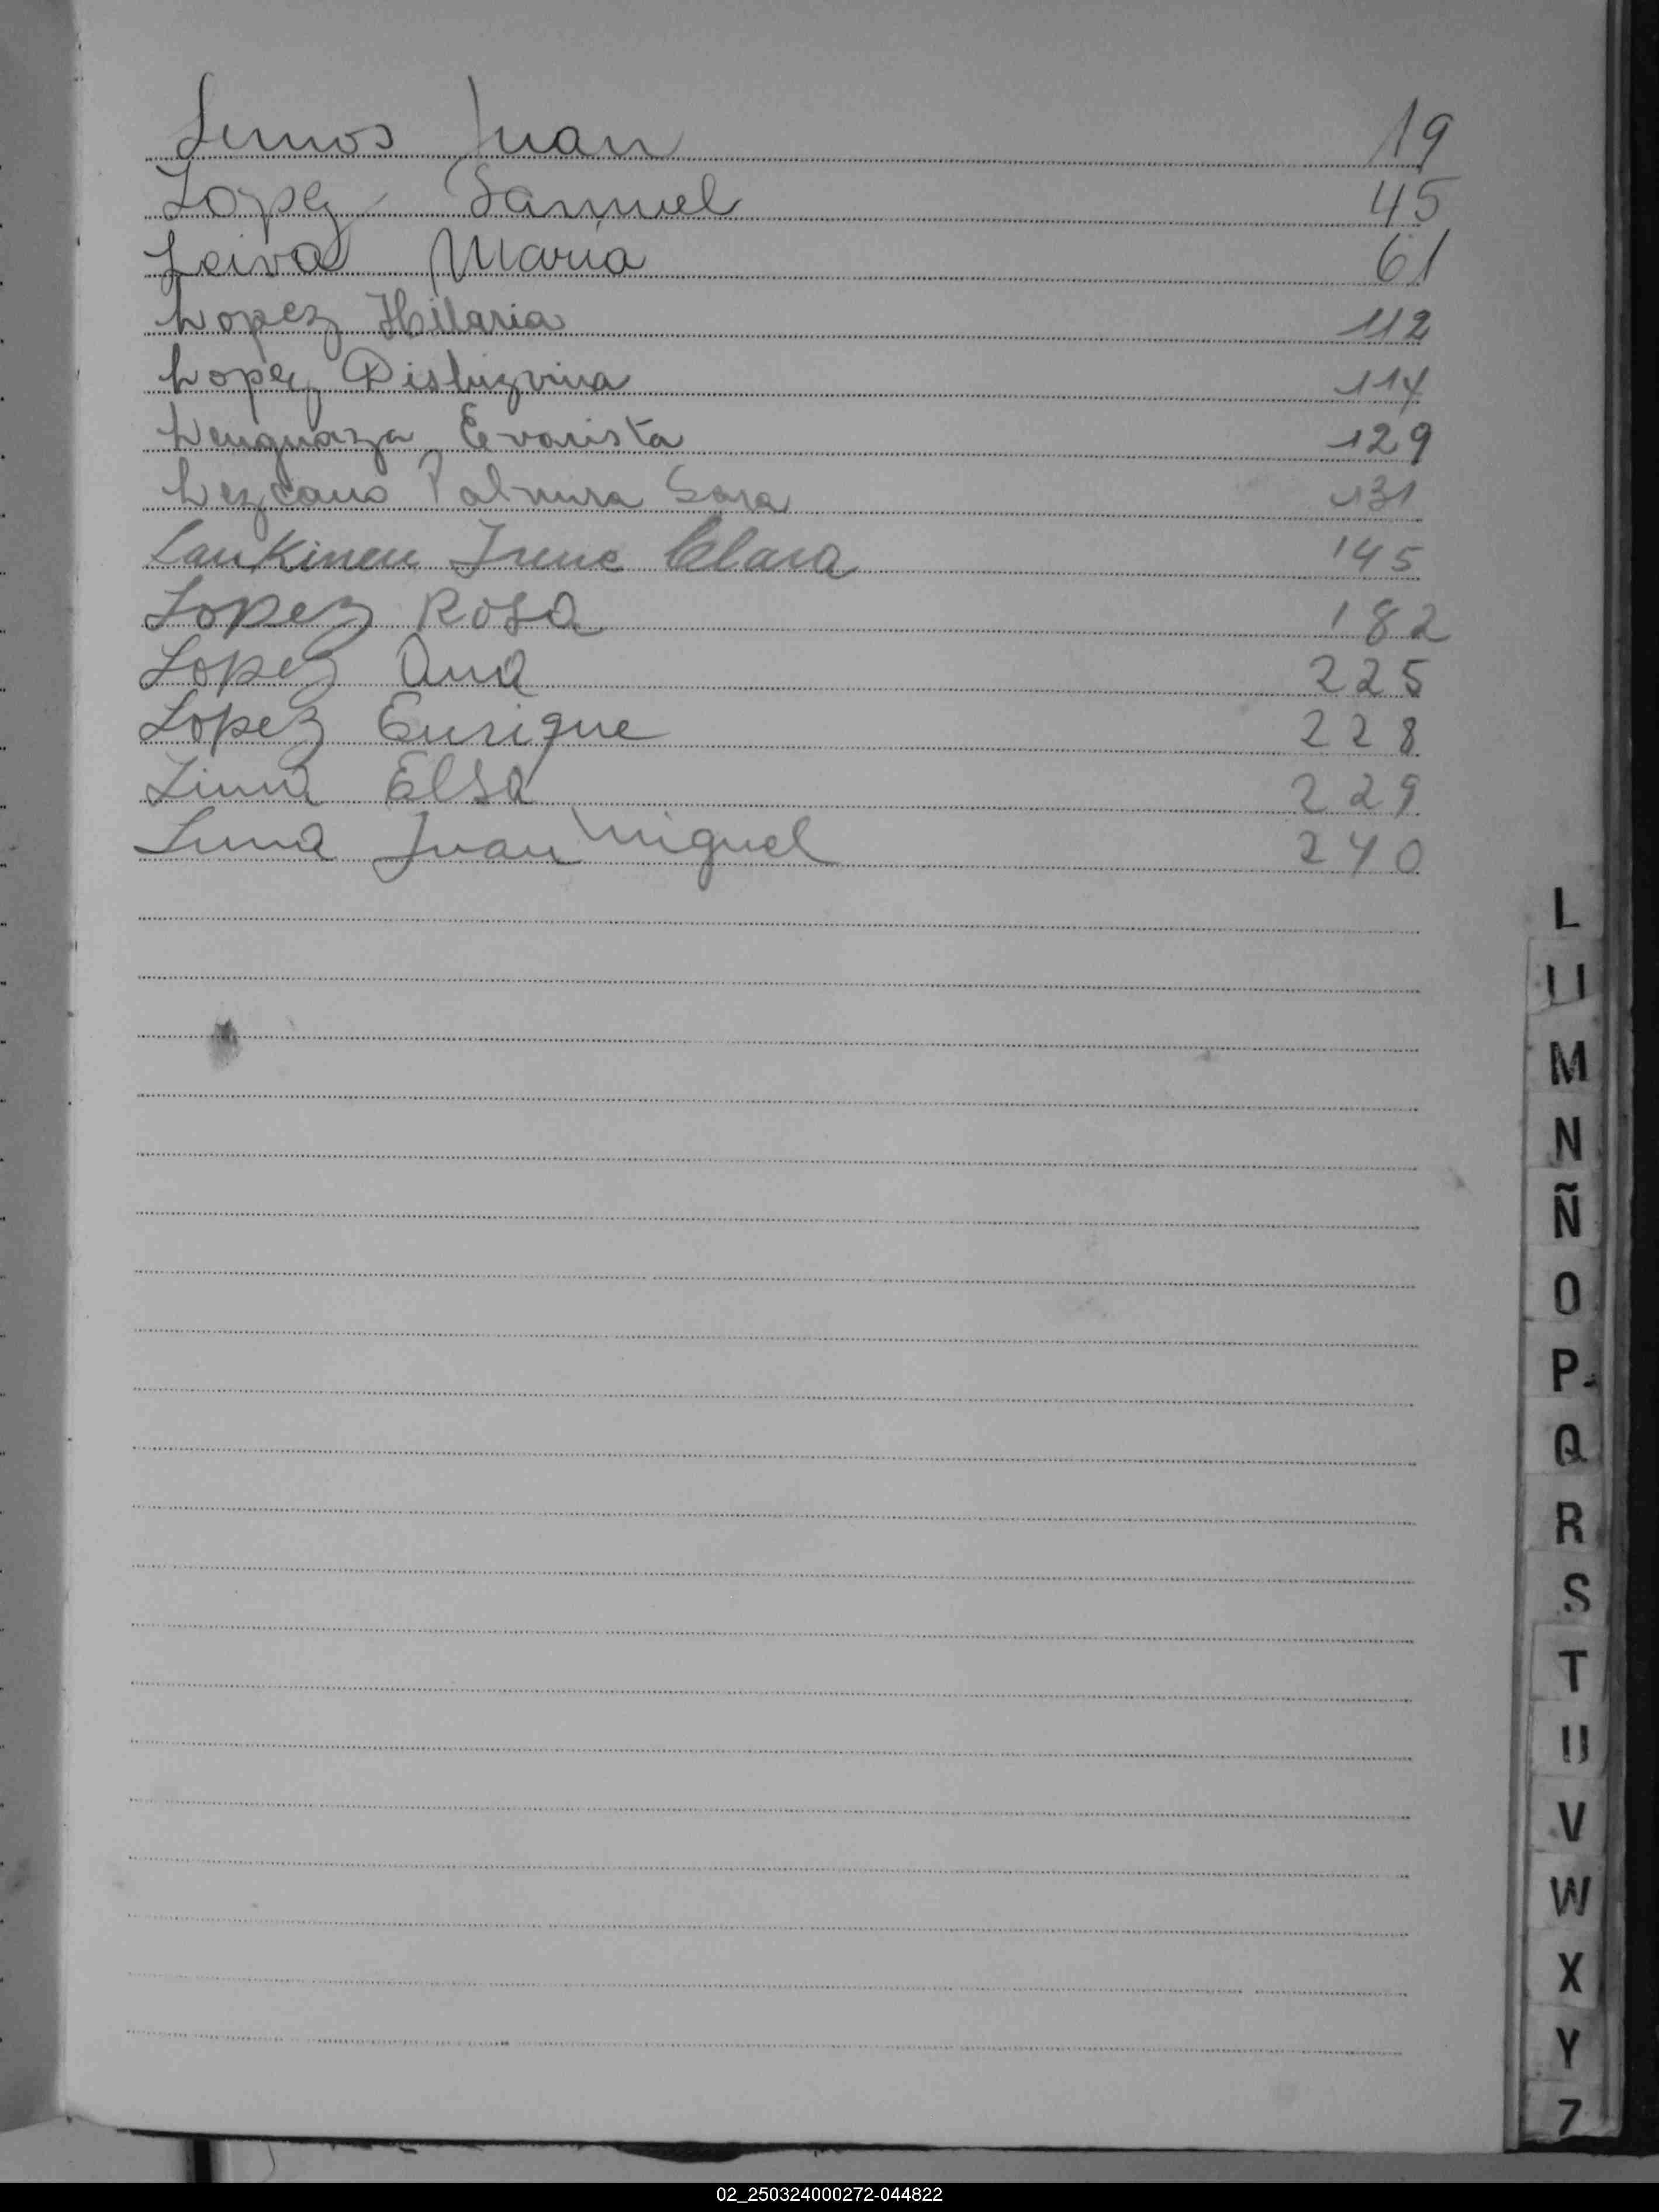 Lemos Juan 19
Lopez Samuel 45
Leiva Maria 61
Lopez Hilaria 112
Lopez 114
Lenguaza Evarista 129
Lezcano Palmira Sara 131
Laukinen Irene Clara 145
Lopez Rosa 182
Lopez Ana 225
Lopez Enrique 228
Lima Elsa 229
Luna Juan Miguel 240
L
Ll
M
N
Ñ
O
P
Q
R
S
T
U
V
W
X
Y
Z
02_250324000272-044822